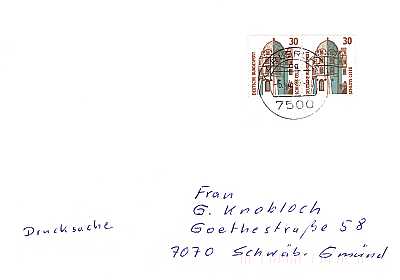 30 30
DEUTSCHE BUNDESPOST
7500
Frau
G. Knobloch
Drucksache
Goethestraße 58
7070 Schwäb. Gmünd